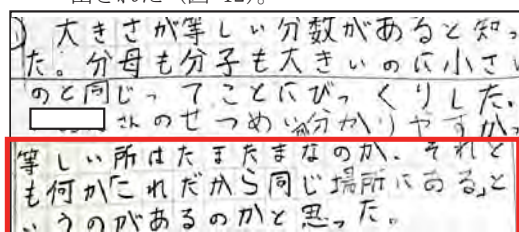 出された（図 12）。
① 大きさが等しい分数があると知っ
た。分母も分子も大きいのに小さい
のと同じってことにびっくりした。
さんのせつめい分かりやすかっ
等しい所はたまたまなのか、それと
も何か「これだから同じ場所にある」と
いうのがあるのかと思った。